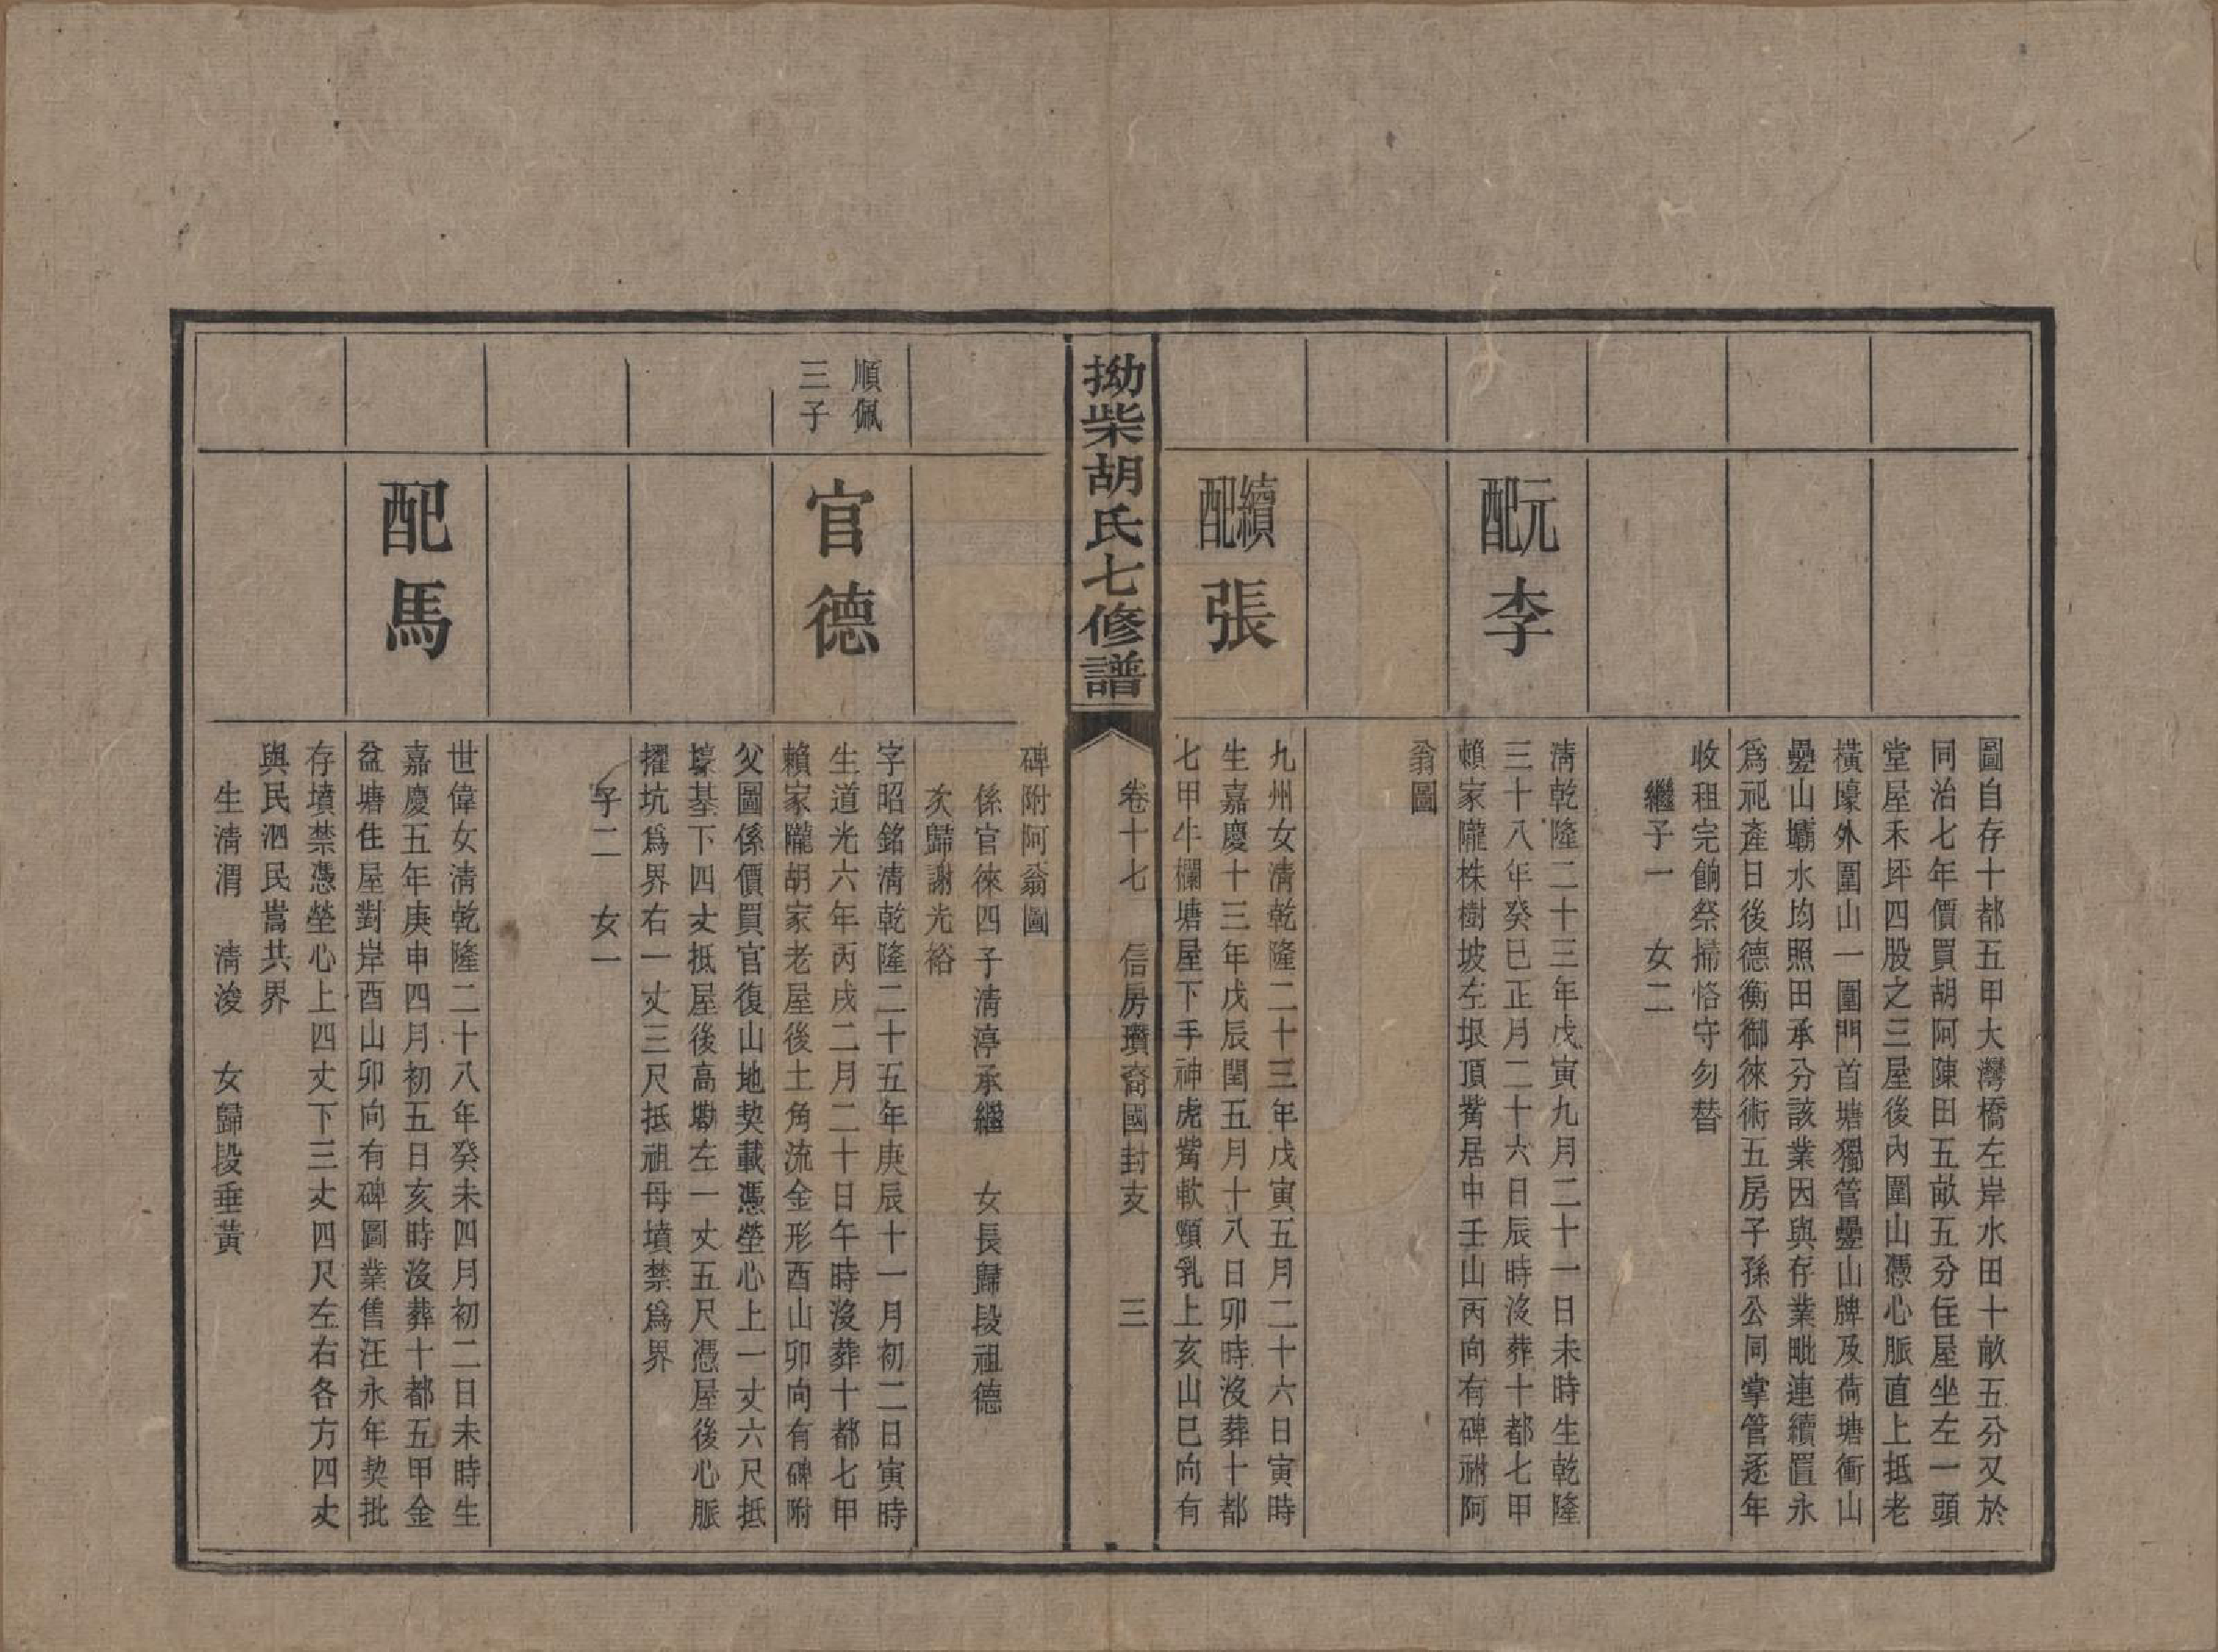 圖自存十都五甲大灣橋左岸水田十畝五分又於
同治七年價買胡阿陳田五畝五分住屋坐左一頭
堂屋禾坪四股之三屋後內圍山憑心脈直上抵老
橫壕外圍山一圍門首塘獨管壘山牌及荷塘衝山
壘山壩水均照田承分該業因與存業毗連續置永
爲祀產日後德衡御徠術五房子孫公同掌管逐年
收租完餉祭掃恪守勿替
繼子一　女二
元配李
清乾隆二十三年戊寅九月二十一日未時生乾隆
三十八年癸巳正月二十六日辰時沒葬十都七甲
賴家隴株樹坡左垠頂觜居中壬山丙向有碑祔阿
翁圖
續配張
九州女清乾隆二十三年戊寅五月二十六日寅時
生嘉慶十三年戊辰閏五月十八日卯時沒葬十都
七甲牛欄塘屋下手神虎觜軟頸乳上亥山巳向有
拗柴胡氏七修譜
卷十七　信房璜裔國封支　三
碑附阿翁圖
係官徠四子清渟承繼　女長歸段祖德
次歸謝光裕
順佩
三子
官德
字昭銘清乾隆二十五年庚辰十一月初二日寅時
生道光六年丙戌二月二十日午時沒葬十都七甲
賴家隴胡家老屋後土角流金形酉山卯向有碑附
父圖係價買官復山地契載憑塋心上一丈六尺抵
壕基下四丈抵屋後高墈左一丈五尺憑屋後心脈
擢坑爲界右一丈三尺抵祖母墳禁爲界
子二　女一
配馬
世偉女清乾隆二十八年癸未四月初二日未時生
嘉慶五年庚申四月初五日亥時沒葬十都五甲金
盆塘住屋對岸酉山卯向有碑圖業售汪永年契批
存墳禁憑塋心上四丈下三丈四尺左右各方四丈
與民泗民嵩共界
生清渭　清浚　女歸段垂黃